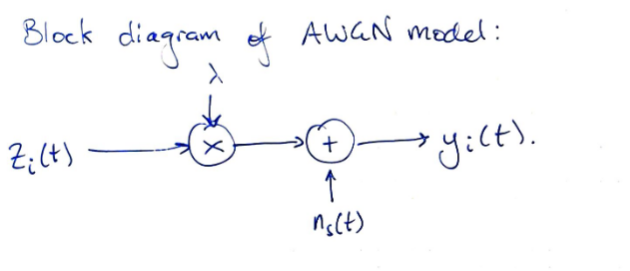 Block diagram of AWGN model:
λ
Zᵢ(t) × + yᵢ(t).
nₛ(t)